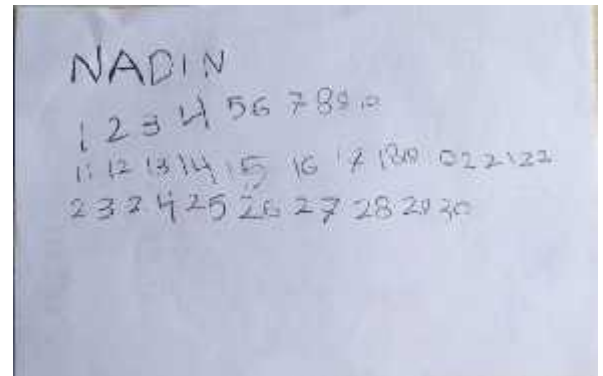 NADIN
1 2 3 4 5 6 7 8 9 10
11 12 13 14 15 16 17 18 19 02 21 22
23 24 25 26 27 28 29 30